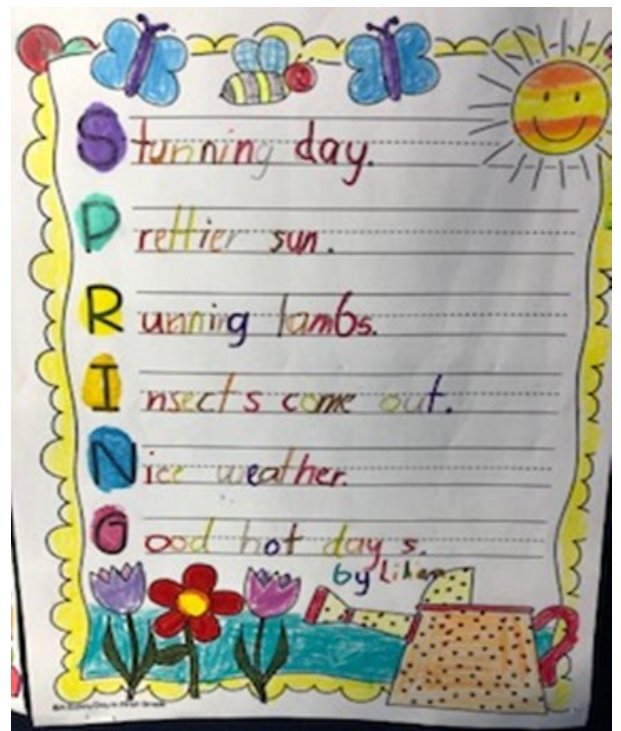 Stunning day.
Prettier sun.
Running lambs.
Insects come out.
Nice weather.
Good hot days.
by